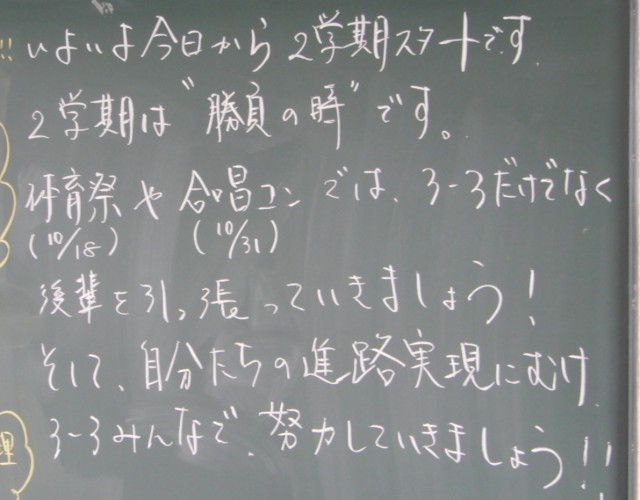 !! いよいよ今日から2学期スタートです.
2学期は"勝負の時"です。
体育祭や合唱コンでは、3-3だけでなく
(10/18) (10/31)
後輩を引っ張っていきましょう!
そして、自分たちの進路実現にむけ
3-3みんなで、努力していきましょう!!
理